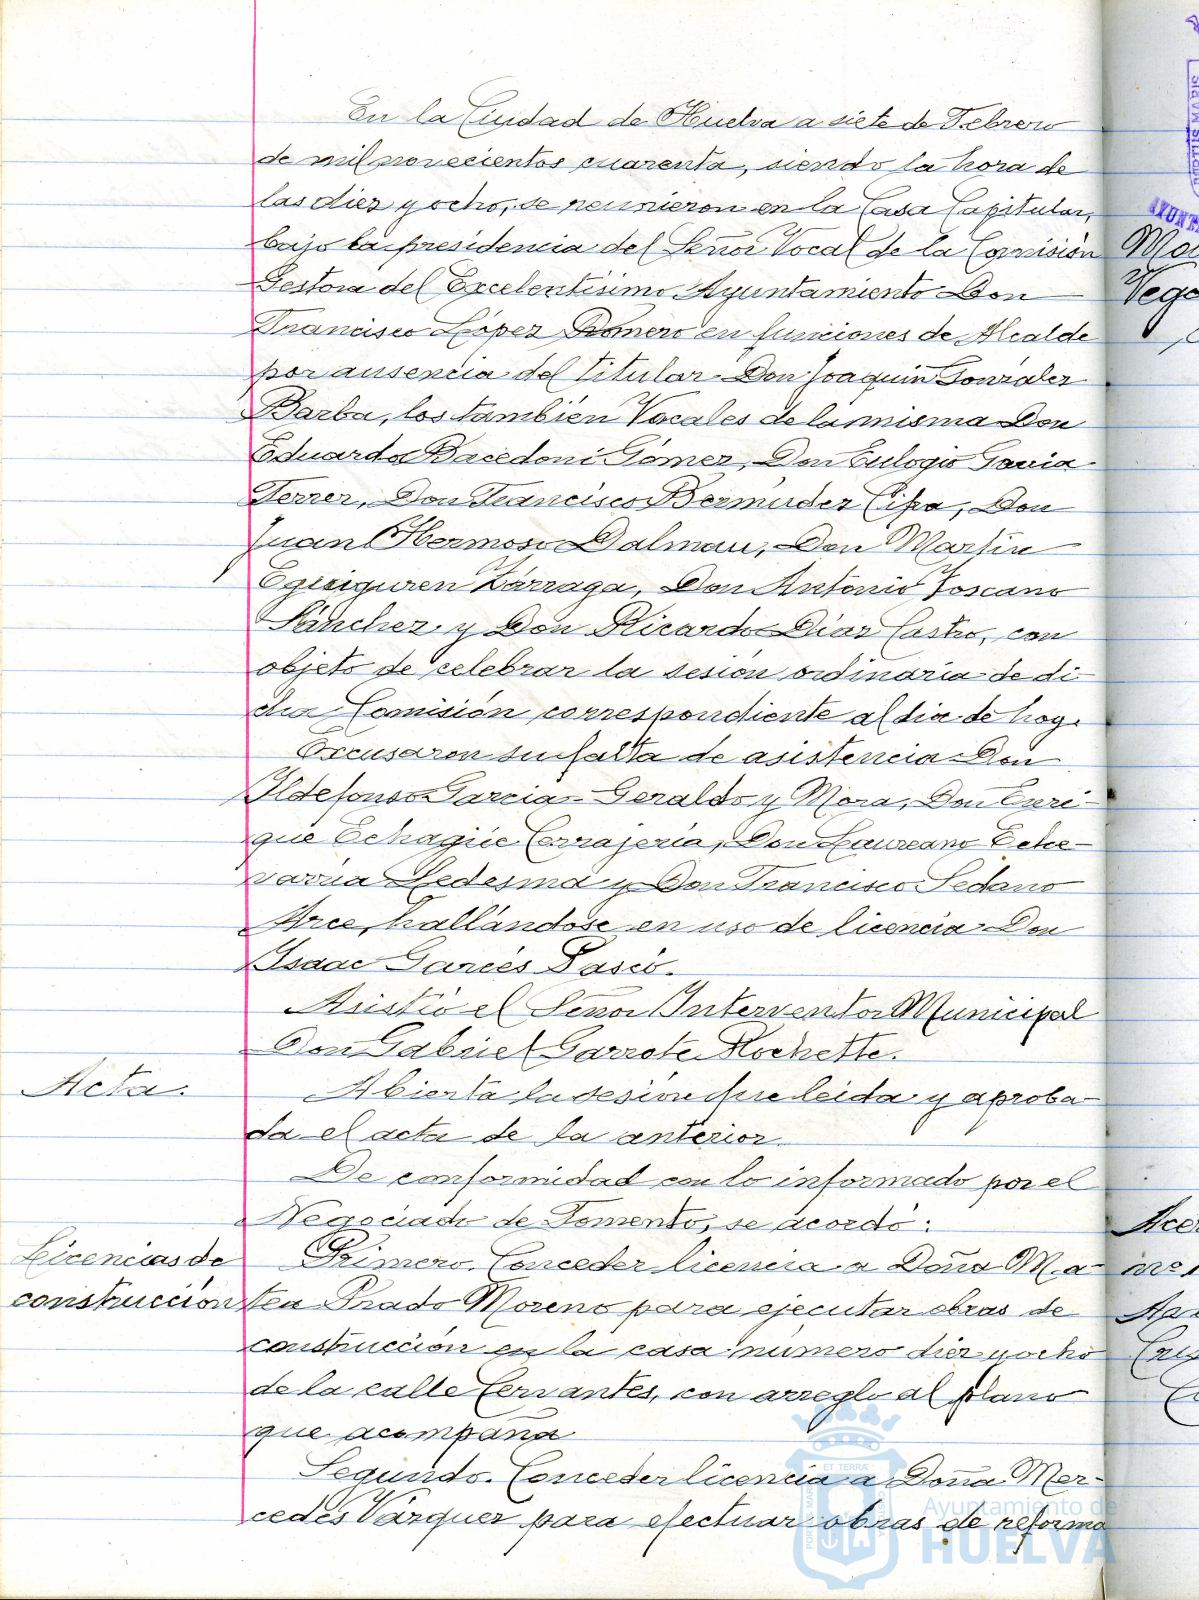 En la Ciudad de Huelva a siete de Febrero
de mil novecientos cuarenta, siendo la hora de
las diez y ocho, se reunieron en la Casa Capitular,
bajo la presidencia del Señor Vocal de la Comisión
Gestora del Excelentísimo Ayuntamiento Don
Francisco López Romero en funciones de Alcalde
por ausencia del titular Don Joaquín González
Barba, los también Vocales de la misma Don
Eduardo Bacedoni Gómez, Don Eulogio Gavia
Ferrer, Don Francisco Bermúdez Cipa, Don
Juan Hermoso Dalmau, Don Martín
Eguiguren Zárraga, Don Antonio Toscano
Sánchez y Don Ricardo Díaz Castro, con
objeto de celebrar la sesión ordinaria de di-
cha Comisión correspondiente al dia de hoy.
Excusaron su falta de asistencia Don
Ildefonso Garcia-Geraldo y Mora, Don Enri-
que Echagüe Cerrajería, Don Laureano Eche-
varria Ledesma y Don Francisco Sedano
Arce, hallándose en uso de licencia Don
Isaac Garcés Pascó.
Asistió el Señor Interventor Municipal
Don Gabriel Garrote Rochette.
Acta.
Abierta la sesión fue leida y aproba-
da el acta de la anterior.
De conformidad con lo informado por el
Negociado de Fomento, se acordó:
Licencias de
construcción
Primero. Conceder licencia a Doña Ma-
tea Prado Moreno para ejecutar obras de
construcción en la casa número diez y ocho
de la calle Cervantes, con arreglo al plano
que acompaña
Segundo. Conceder licencia a Doña Mer-
cedes Vázquez para efectuar obras de reforma
Ayuntamiento de
HUELVA